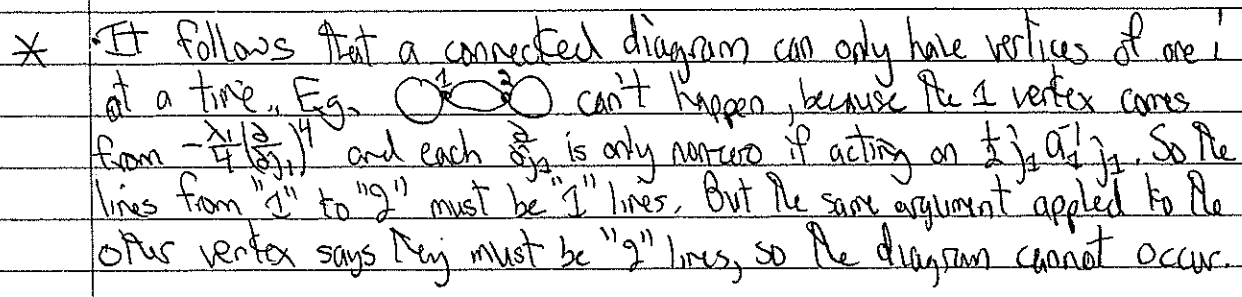 * · It follows that a connected diagram can only have vertices of one i
at a time. E.g. 1 2 can't happen, because the 1 vertex comes
from -λ₁/4 (∂/∂j₁)⁴ and each ∂/∂j₁ is only nonzero if acting on ½ j₁ a₁⁻¹ j₁. So the
lines from "1" to "2" must be "1" lines. But the same argument appled to the
other vertex says they must be "2" lines, so the diagram cannot occur.